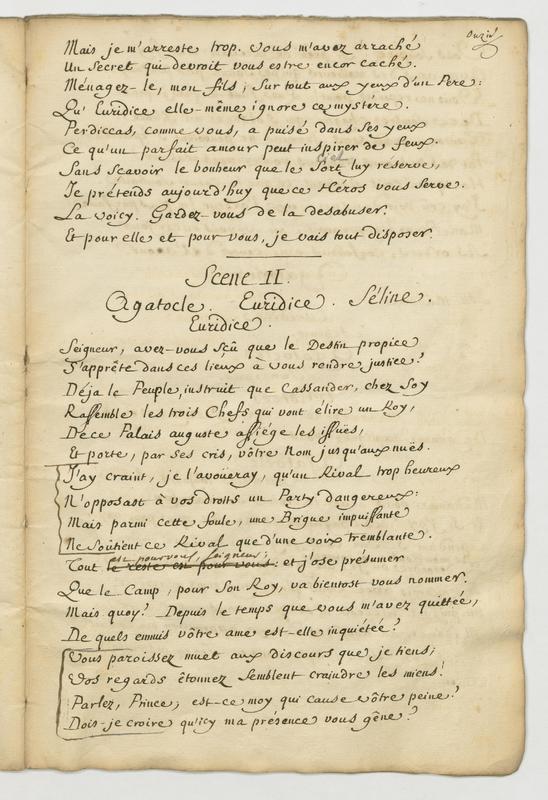 Onziè
Mais je m'arreste trop. Vous m'avez arraché
Un Secret qui devroit vous estre encor caché.
Ménagez-le, mon fils; Sur tout aux yeux d'un Pere:
Qu'Euridice elle-même ignore ce mystére.
Perdiccas, comme vous, a puisé dans Ses yeux
Ce qu'un parfait amour peut inspirer de feux.
Ciel
Sans Scavoir le bonheur que le Sort luy reserve,
Je prétends aujourd'huy que ce Héros vous Serve.
La voicy. Gardez-vous de la desabuser.
Et pour elle et pour vous, je vais tout disposer.
Scene II.
Agatocle. Euridice. Séline.
Euridice.
Seigneur, avez-vous Sçû que le Destin propice
S'apprête dans ces lieux à vous rendre justice?
Déja le Peuple, instruit que Cassander, chez Soy
Rassemble les trois Chefs qui vont élire un Roy,
De ce Palais auguste assiége les issües,
Et porte, par Ses cris, vôtre Nom jusqu'aux nuës.
J'ay craint, je l'avoüeray, qu'un Rival trop heureux
N'opposast à vos droits un Party dangereux:
Mais parmi cette foule, une Brigue impuissante
Ne Soûtient ce Rival que d'une voix tremblante.
est pour vous, Seigneur;
Tout le reste est pour vous: et j'ose présumer
Que le Camp, pour Son Roy, va bientost vous nommer.
Mais quoy? Depuis le temps que vous m'avez quittée,
De quels ennuis vôtre ame est-elle inquiétée?
Vous paroissez muet aux discours que je tiens;
Vos regards étonnez Semblent craindre les miens!
Parlez, Prince; est-ce moy qui cause vôtre peine?
Dois-je croire qu'icy ma présence vous gêne?